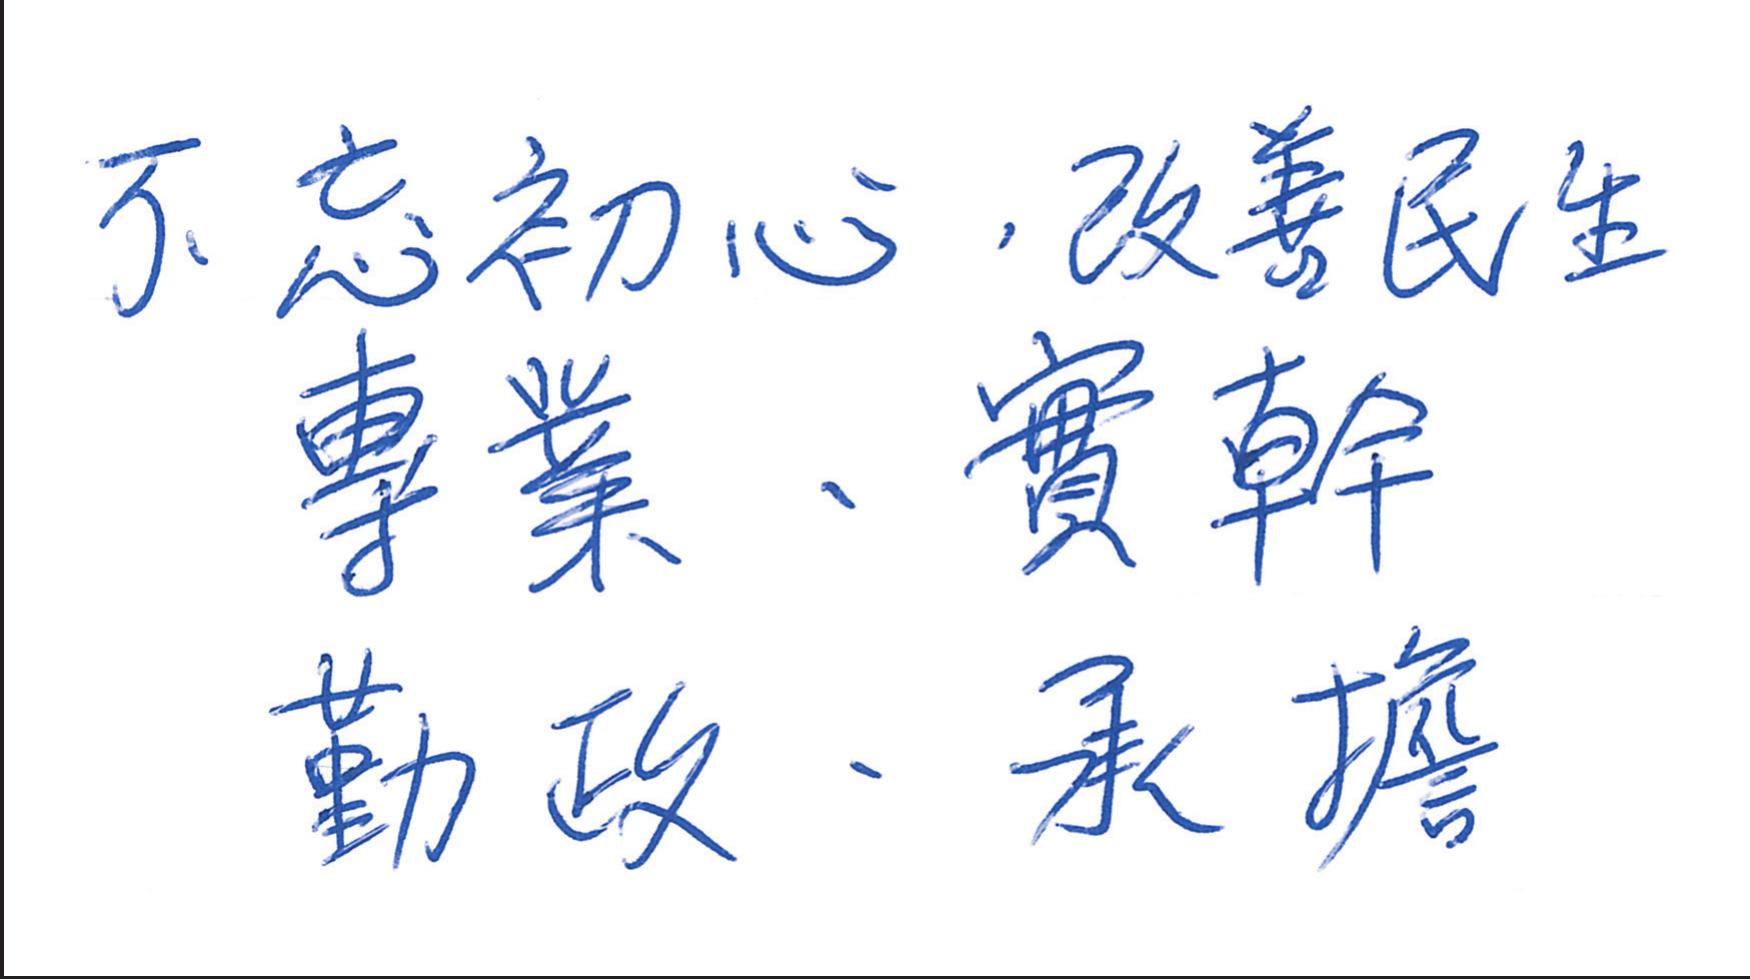 不忘初心，改善民生
專業、實幹
勤政、承擔